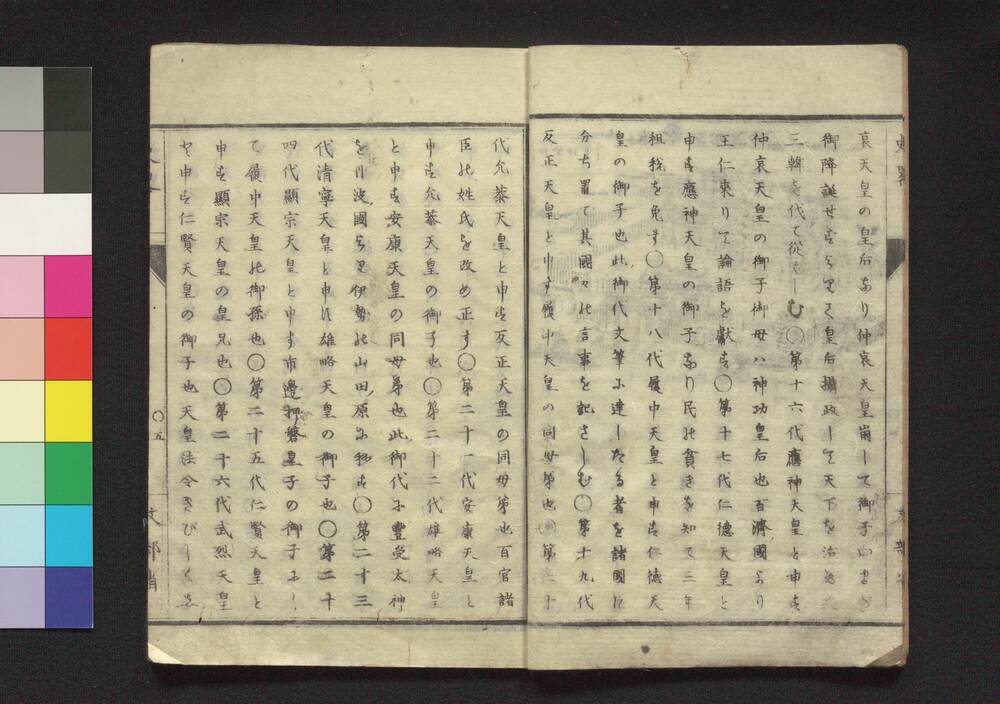 哀天皇の皇后なり仲哀天皇崩して御子いまだ
御降誕せざるをもて皇后攝政して天下を治め
三韓を代て従へしむ〇第十六代應神天皇と申す
仲哀天皇の御子御母ハ神功皇后也百濟國より
王仁來りて論語を獻す〇第十七代仁德天皇と
申す應神天皇の御子なり民の貧きを知て三年
租税を免す〇第十八代履中天皇と申す仁德天
皇の御子也此御代文筆に達したる者を諸國に
分ち置て其國々の言事を記さしむ〇第十九代
反正天皇と申す履中天皇の同母弟也〇第二十
代允恭天皇と申す反正天皇の同母弟也百官諸
臣の姓氏を改め正す〇第二十一代安康天皇と
申す允恭天皇の御子也〇第二十二代雄略天皇
と申す安康天皇の同母弟也此御代に豐受太神
を丹波國より伊勢の山田原に移す〇第二十三
代清寧天皇と申す雄略天皇の御子也〇第二十
四代顯宗天皇と申す市邊押磐皇子の御子にし
て履中天皇の御孫也〇第二十五代仁賢天皇と
申す顯宗天皇の皇兄也〇第二十六代武烈天皇
と申す仁賢天皇の御子也天皇法令きびしく
〇五
文部省